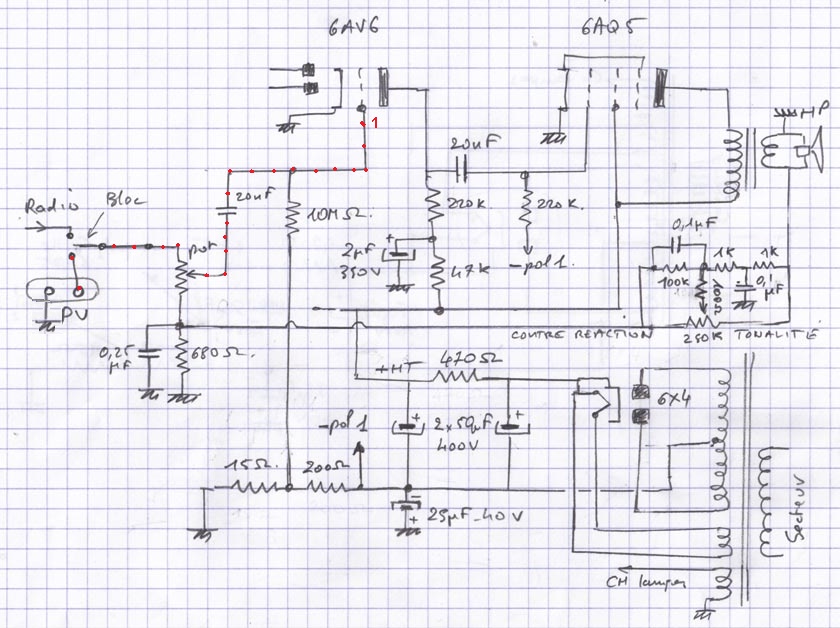 6AV6
6AQ5
1
HP
20nF
Radio
Bloc
20nF
10MΩ.
220K
220K.
pot
2µF
350V
47K
-pol 1.
0,1µF
1K
1K
100K
0,1
µF
PU
CONTRE REACTION
250K
TONALITÉ
0,25
µF
680Ω.
+HT
470Ω
6X4
-pol 1
2x50µF
400V
15Ω.
200Ω
25µF-40V
Secteur
CH lampes